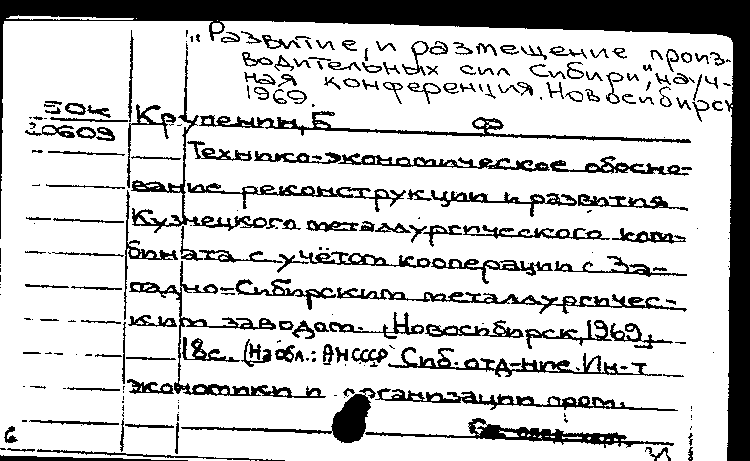 „Развитие и размещение произ-
водительных сил Сибири", науч-
ная конференция. Новосибирск
1969.
БОК
Крупенин, Б Ф
20609
Технико-экономическое обосно-
вание реконструкции и развития
Кузнецкого металлургического ком-
бината с учётом кооперации с За-
падно-Сибирским металлургичес-
ким заводом. [Новосибирск, 1969],
18с. (На обл.: АН СССР Сиб. отд-ние. Ин-т
экономики и организации пром.